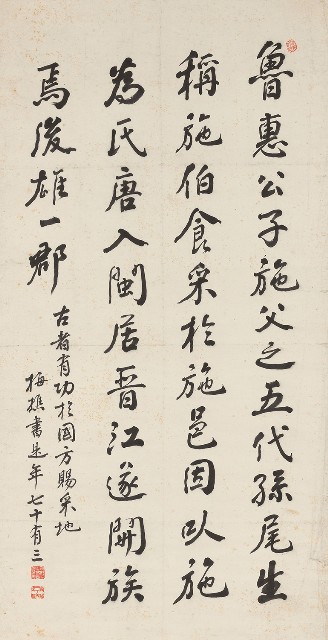 魯惠公子施父之五代孫尾生
稱施伯食采於施邑因以施
為氏唐入閩居晉江遂開族
焉後雄一郡
古者有功於國方賜采地
梅樵書是年七十有三